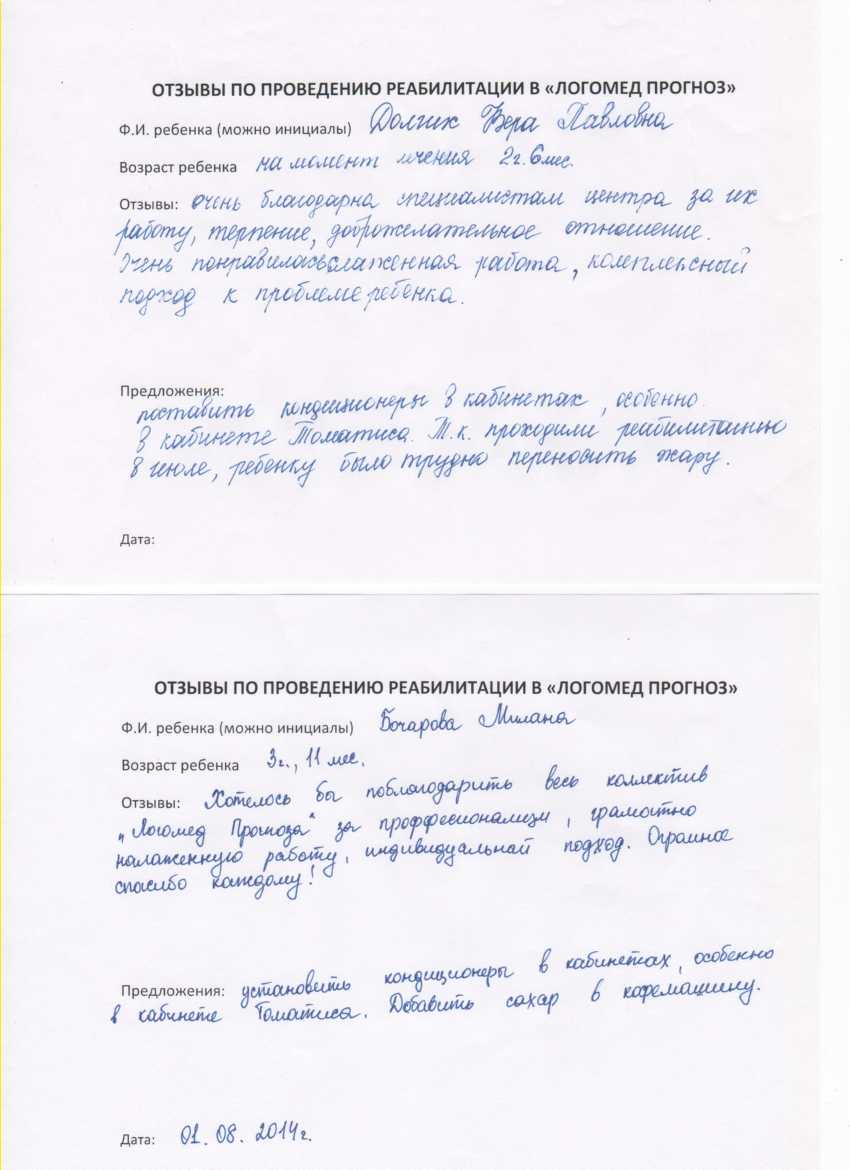 ОТЗЫВЫ ПО ПРОВЕДЕНИЮ РЕАБИЛИТАЦИИ В «ЛОГОМЕД ПРОГНОЗ»
Ф.И. ребенка (можно инициалы) Долгих Вера Павловна
Возраст ребенка на момент лечения 2г. 6 мес.
Отзывы: очень благодарна специалистам центра за их
работу, терпение, доброжелательное отношение.
Очень понравилась слаженная работа, комплексный
подход к проблеме ребенка.
Предложения:
поставить кондиционеры в кабинетах, особенно
в кабинете Томатиса. Т.к. проходили реабилитацию
в июле, ребенку было трудно переносить жару.
Дата:
ОТЗЫВЫ ПО ПРОВЕДЕНИЮ РЕАБИЛИТАЦИИ В «ЛОГОМЕД ПРОГНОЗ»
Ф.И. ребенка (можно инициалы) Бочарова Милана
Возраст ребенка 3г., 11 мес.
Отзывы: Хотелось бы поблагодарить весь коллектив
„Логомед Прогноза" за проффесионализм, грамотно
налаженную работу, индивидуальный подход. Огромное
спасибо каждому!
Предложения: установить кондиционеры в кабинетах, особенно
в кабинете Томатиса. Добавить сахар в кофемашину.
Дата: 01.08.2014г.